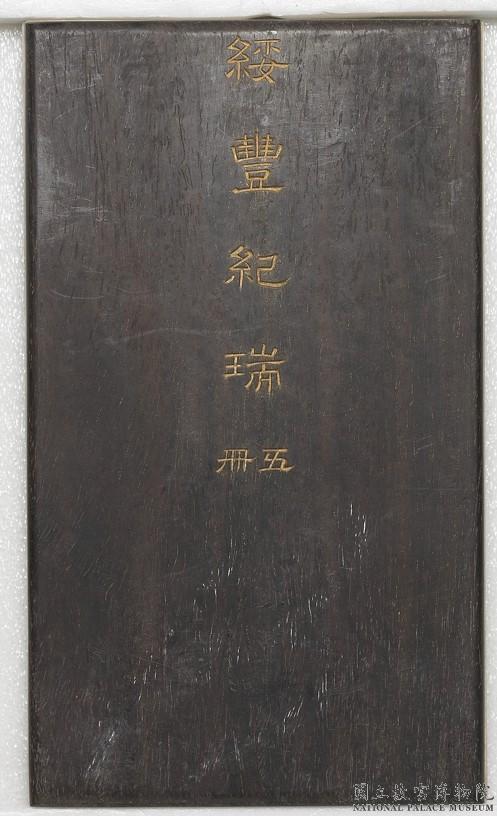 綏豐紀瑞
五冊
國立故宮博物院
NATIONAL PALACE MUSEUM